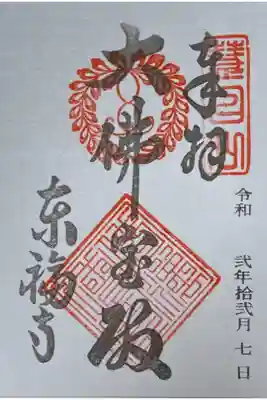 慧日山
奉拝
令和 弐年拾弐月 七 日
大佛宝殿
東福寺